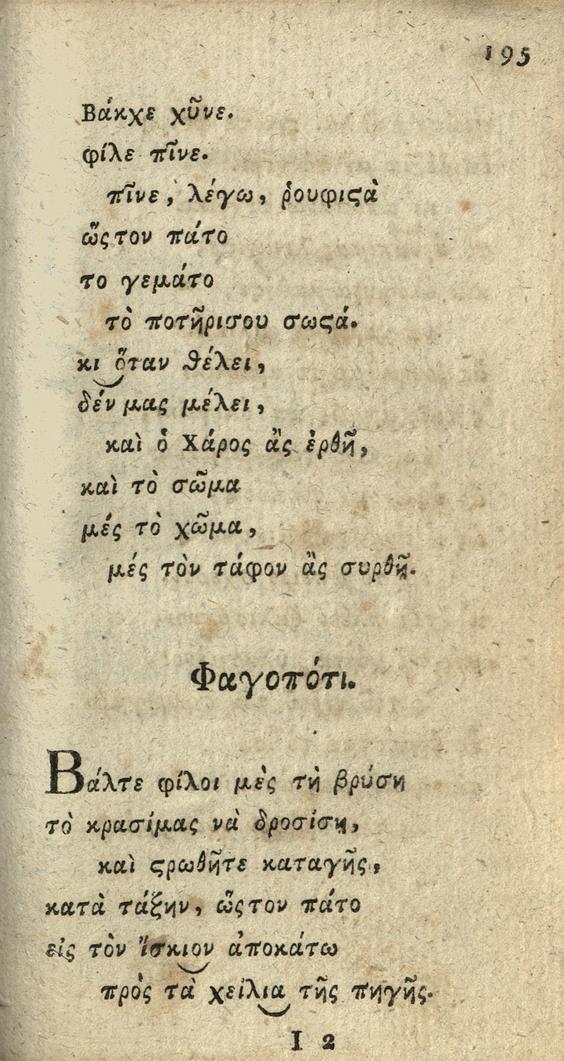 195
Βάκχε χῦνε.
φίλε πῖνε.
πῖνε, λέγω, ῥουφιςὰ
ὥςτον πάτο
το γεμάτο
τὸ ποτῆρισου σωςά.
κι ὅταν θέλει,
δέν μας μέλει,
καὶ ὁ Χάρος ἂς ἐρθῇ,
καὶ τὸ σῶμα
μές τὸ χῶμα,
μές τὸν τάφον ἂς συρθῇ.
Φαγοπότι.
Βάλτε φίλοι μὲς τὴ βρύση
τὸ κρασίμας νὰ δροσίσῃ,
καὶ ςρωθῆτε καταγῆς,
κατὰ τάξην, ὥςτον πάτο
εἰς τὸν ἴσκιον ἀποκάτω
πρὸς τὰ χείλια τῆς πηγῆς.
I 2